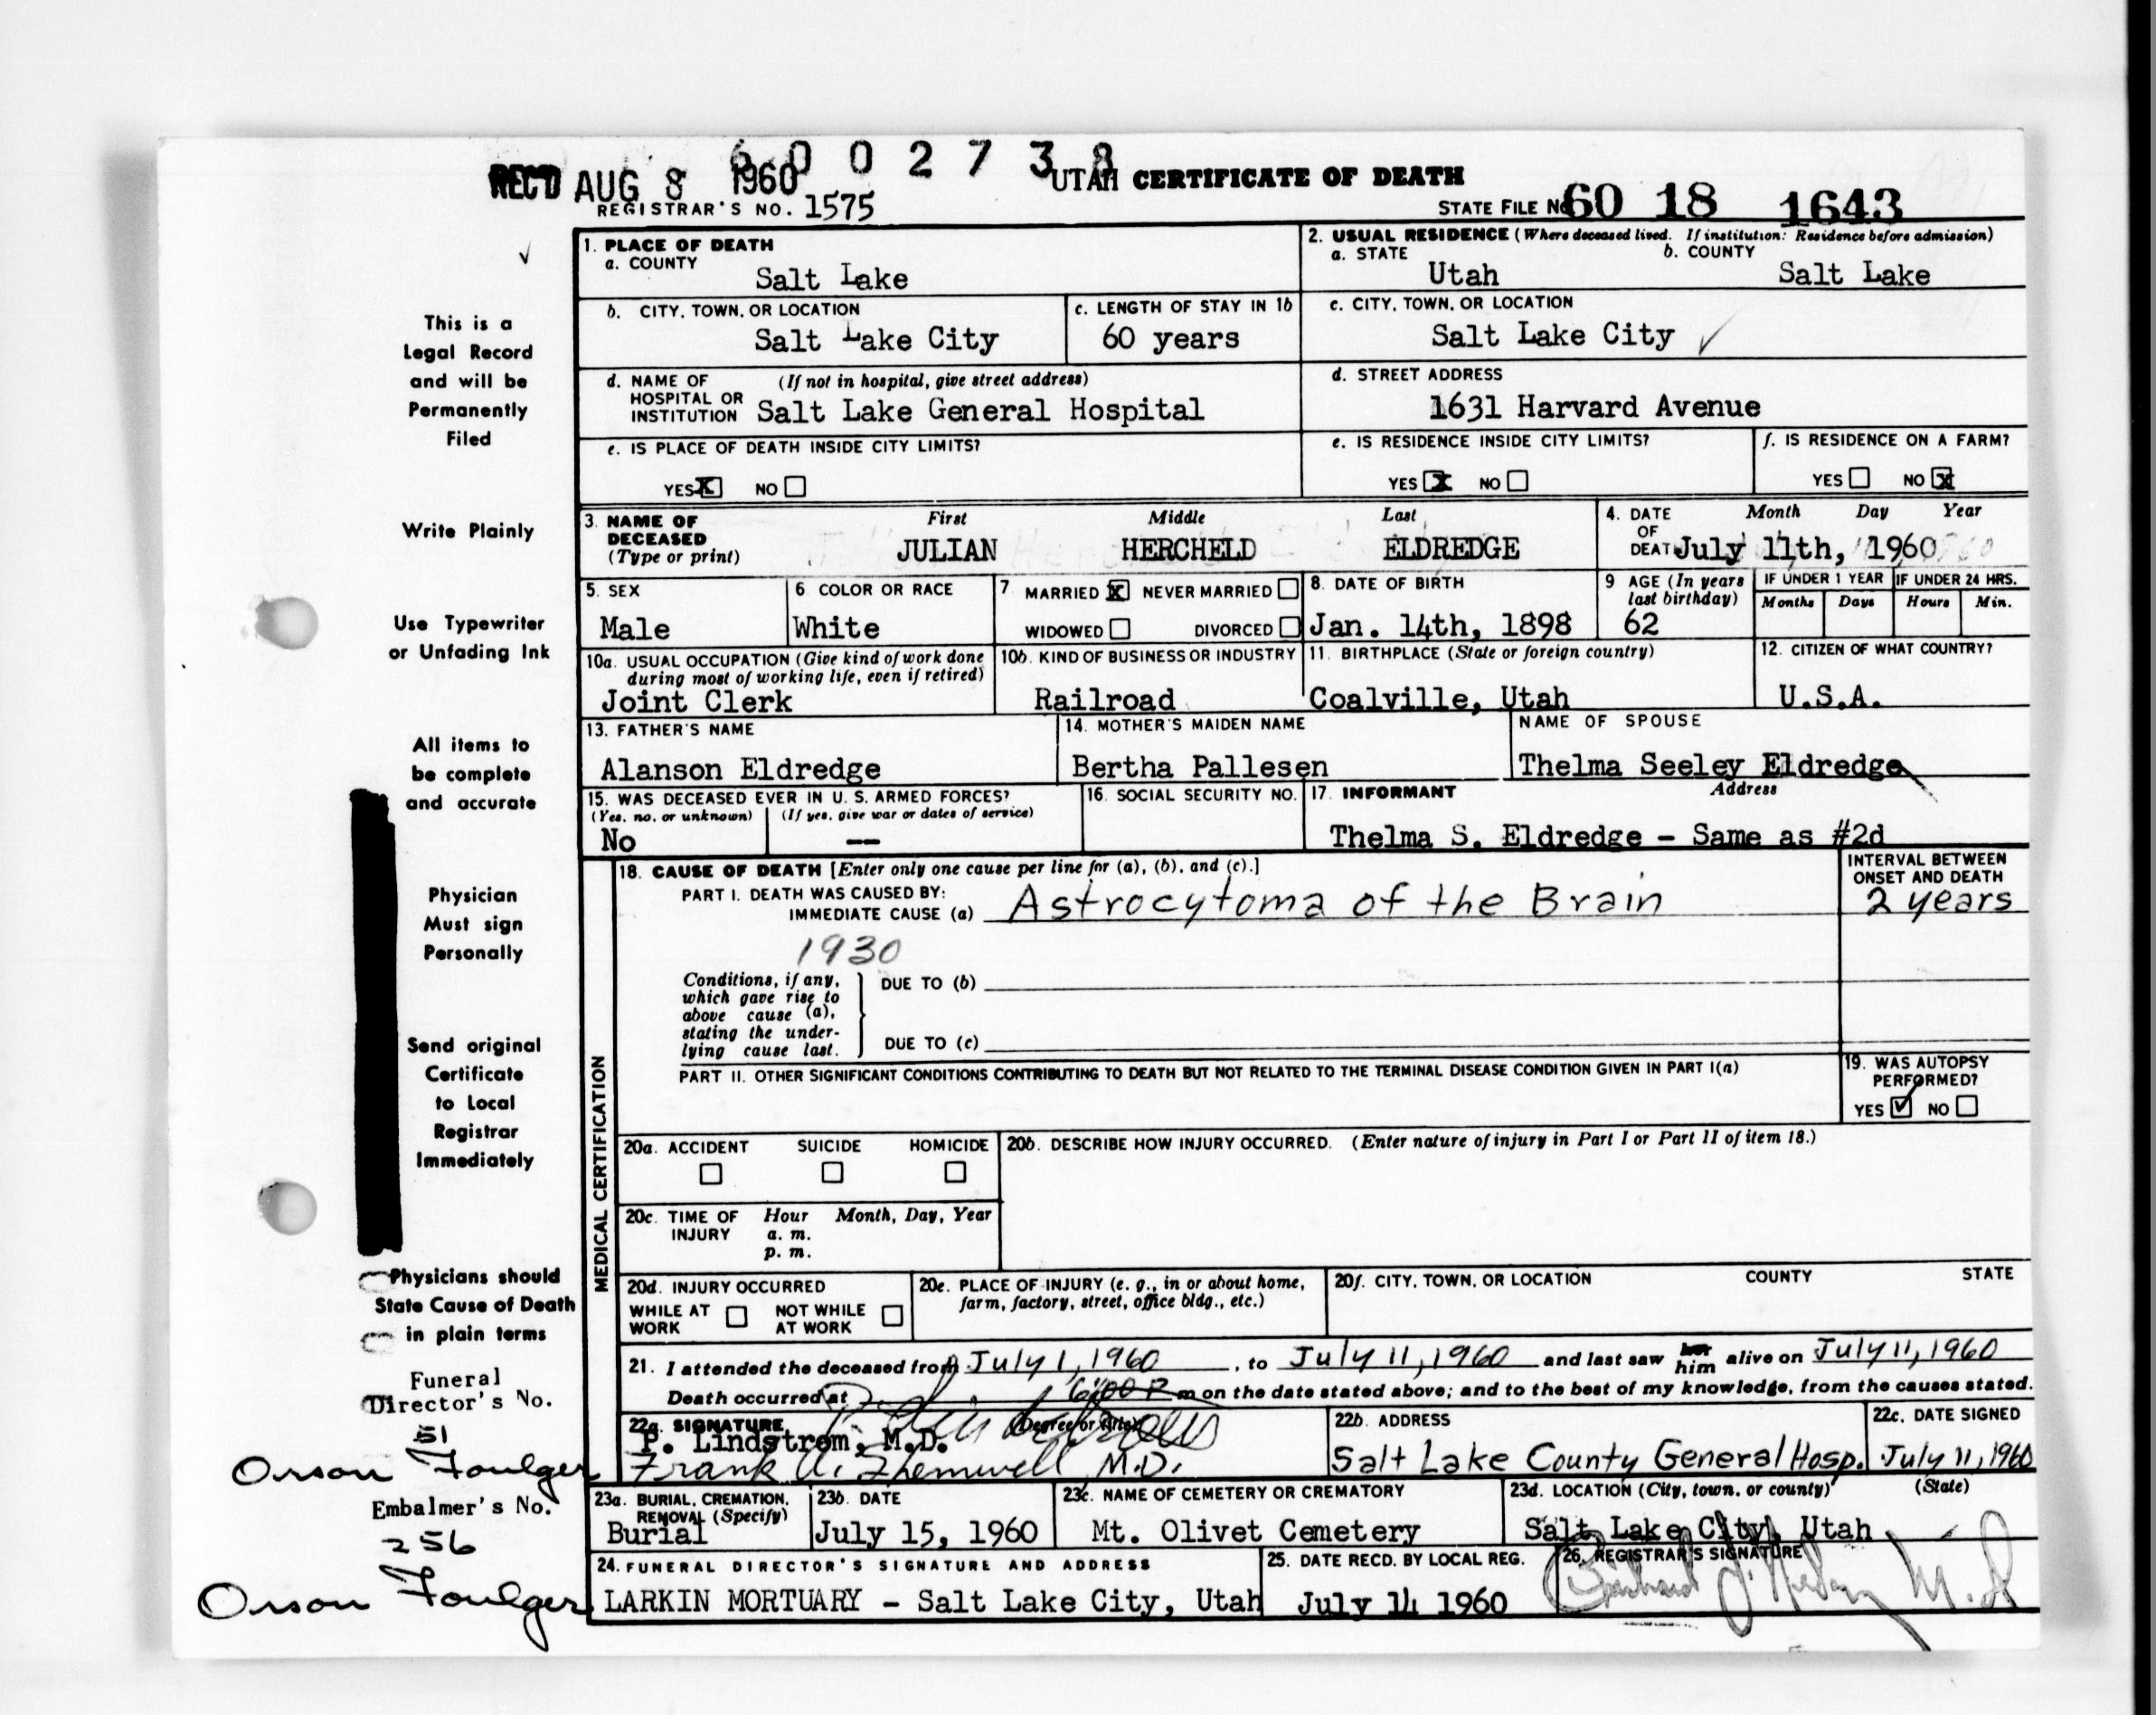 6 0 0 2 7 3 8
REC'D AUG 8 1960 UTAH CERTIFICATE OF DEATH
REGISTRAR'S NO. 1575 STATE FILE NO. 60 18 1643
1. PLACE OF DEATH
a. COUNTY
Salt Lake
2. USUAL RESIDENCE (Where deceased lived. If institution: Residence before admission)
a. STATE b. COUNTY
Utah Salt Lake
b. CITY, TOWN, OR LOCATION
Salt Lake City
c. LENGTH OF STAY IN 1b
60 years
c. CITY, TOWN, OR LOCATION
Salt Lake City
d. NAME OF (If not in hospital, give street address)
HOSPITAL OR
INSTITUTION Salt Lake General Hospital
d. STREET ADDRESS
1631 Harvard Avenue
e. IS PLACE OF DEATH INSIDE CITY LIMITS?
YES X NO
e. IS RESIDENCE INSIDE CITY LIMITS?
YES X NO
f. IS RESIDENCE ON A FARM?
YES NO X
3. NAME OF
DECEASED
(Type or print)
First Middle Last
JULIAN HERCHELD ELDREDGE
4. DATE Month Day Year
OF
DEATH July 11th, 1960
5. SEX
Male
6. COLOR OR RACE
White
7 MARRIED X NEVER MARRIED
WIDOWED DIVORCED
8. DATE OF BIRTH
Jan. 14th, 1898
9 AGE (In years
last birthday)
62
IF UNDER 1 YEAR IF UNDER 24 HRS.
Months Days Hours Min.
10a. USUAL OCCUPATION (Give kind of work done
during most of working life, even if retired)
Joint Clerk
10b. KIND OF BUSINESS OR INDUSTRY
Railroad
11. BIRTHPLACE (State or foreign country)
Coalville, Utah
12. CITIZEN OF WHAT COUNTRY?
U.S.A.
13. FATHER'S NAME
Alanson Eldredge
14. MOTHER'S MAIDEN NAME
Bertha Pallesen
NAME OF SPOUSE
Thelma Seeley Eldredge
15. WAS DECEASED EVER IN U. S. ARMED FORCES?
(Yes, no, or unknown) (If yes, give war or dates of service)
No --
16. SOCIAL SECURITY NO.
17. INFORMANT Address
Thelma S. Eldredge - Same as #2d
MEDICAL CERTIFICATION
18. CAUSE OF DEATH [Enter only one cause per line for (a), (b), and (c).]
PART I. DEATH WAS CAUSED BY:
IMMEDIATE CAUSE (a) Astrocytoma of the Brain
INTERVAL BETWEEN
ONSET AND DEATH
2 years
1930
Conditions, if any,
which gave rise to
above cause (a),
stating the under-
lying cause last.
DUE TO (b)
DUE TO (c)
PART II. OTHER SIGNIFICANT CONDITIONS CONTRIBUTING TO DEATH BUT NOT RELATED TO THE TERMINAL DISEASE CONDITION GIVEN IN PART I(a)
19. WAS AUTOPSY
PERFORMED?
YES ✓ NO
20a. ACCIDENT SUICIDE HOMICIDE
20b. DESCRIBE HOW INJURY OCCURRED. (Enter nature of injury in Part I or Part II of item 18.)
20c. TIME OF Hour Month, Day, Year
INJURY a. m.
p. m.
20d. INJURY OCCURRED
WHILE AT NOT WHILE
WORK AT WORK
20e. PLACE OF INJURY (e. g., in or about home,
farm, factory, street, office bldg., etc.)
20f. CITY, TOWN, OR LOCATION COUNTY STATE
21. I attended the deceased from July 1, 1960, to July 11, 1960 and last saw her him alive on July 11, 1960
Death occurred at 6:00 P m on the date stated above; and to the best of my knowledge, from the causes stated.
22a. SIGNATURE (Degree or title)
P. Lindstrom, M.D.
Frank A. Themwell M.D.
22b. ADDRESS
Salt Lake County General Hosp.
22c. DATE SIGNED
July 11, 1960
23a. BURIAL, CREMATION,
REMOVAL (Specify)
Burial
23b. DATE
July 15, 1960
23c. NAME OF CEMETERY OR CREMATORY
Mt. Olivet Cemetery
23d. LOCATION (City, town, or county) (State)
Salt Lake City, Utah
24. FUNERAL DIRECTOR'S SIGNATURE AND ADDRESS
LARKIN MORTUARY - Salt Lake City, Utah
25. DATE RECD. BY LOCAL REG.
July 14 1960
26. REGISTRAR'S SIGNATURE
M.D.
This is a
Legal Record
and will be
Permanently
Filed
Write Plainly
Use Typewriter
or Unfading Ink
All items to
be complete
and accurate
Physician
Must sign
Personally
Send original
Certificate
to Local
Registrar
Immediately
Physicians should
State Cause of Death
in plain terms
Funeral
Director's No.
51
Orson Foulger
Embalmer's No.
256
Orson Foulger